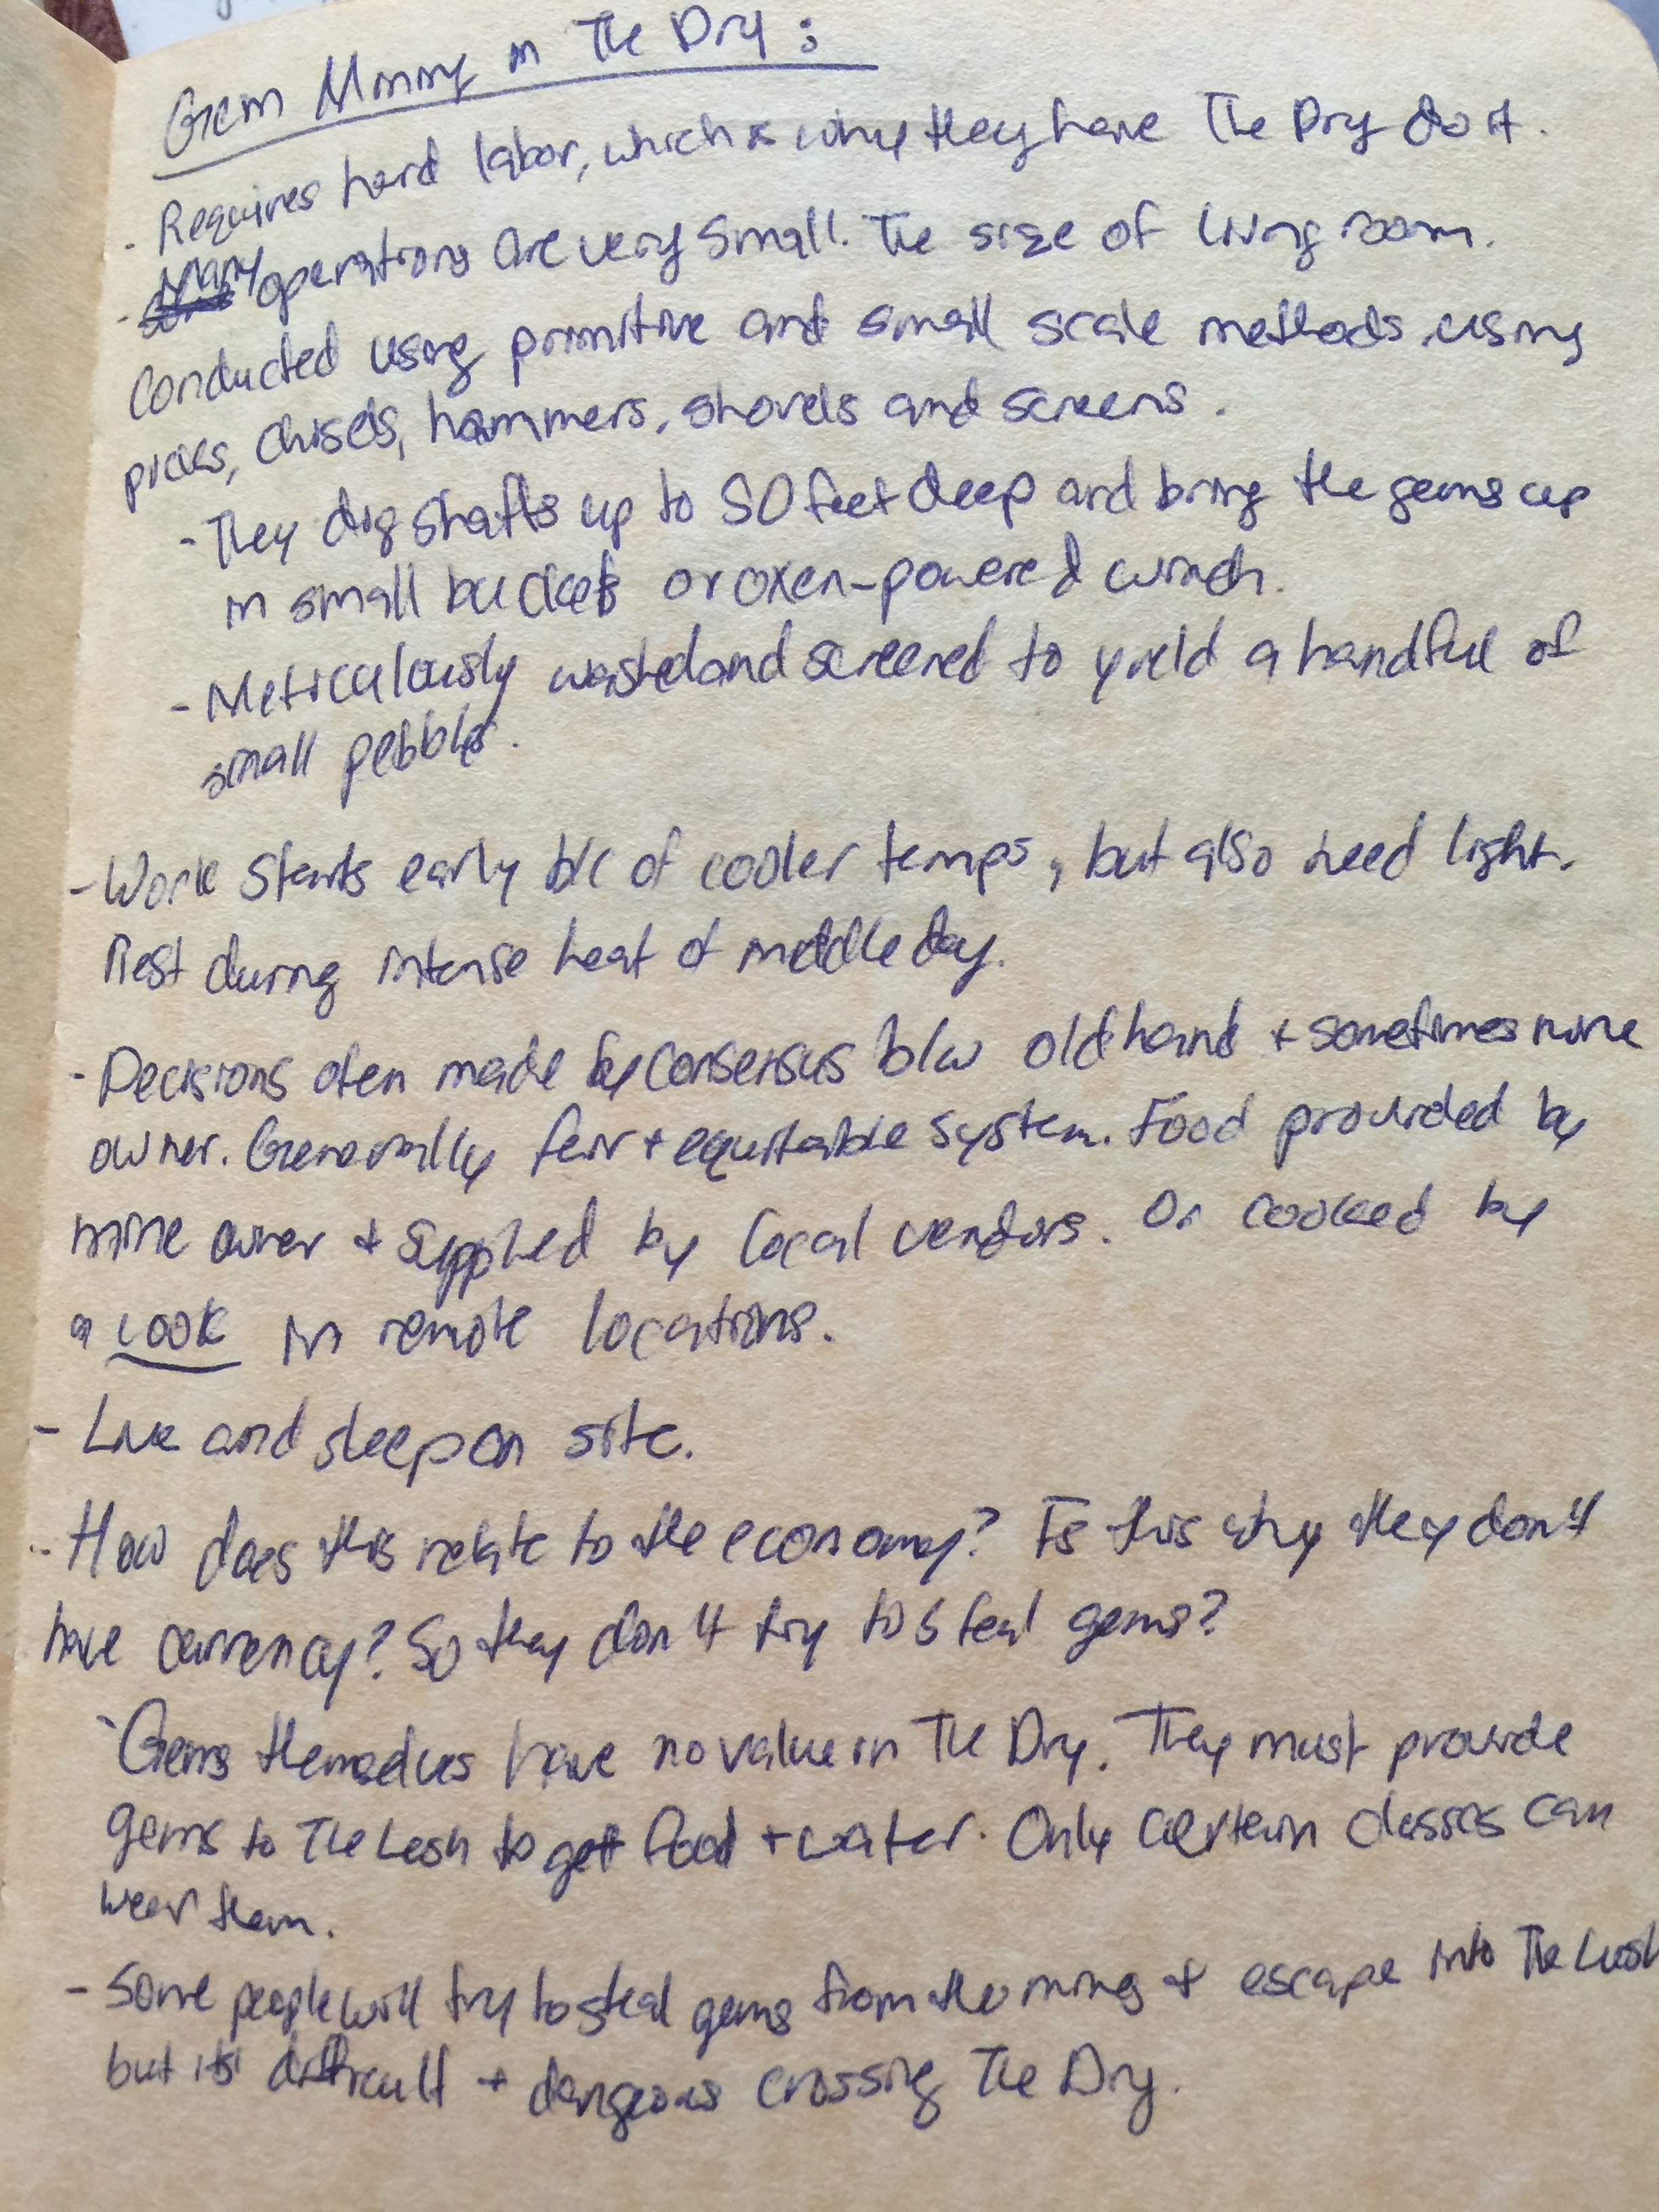 Gem Mining in The Dry:
- Requires hard labor, which is why they have The Dry do it.
- Many operations are very small. The size of living room.
Conducted using primitive and small scale methods, using
picks, chisels, hammers, shovels and screens.
- They dig shafts up to 50 feet deep and bring the gems up
in small buckets or oxen-powered winch.
- Meticulously washed and screened to yield a handful of
small pebbles.
- Work starts early b/c of cooler temps, but also need light.
Rest during intense heat of middle day.
- Decisions often made by consensus b/w old hand + sometimes mine
owner. Generally fair + equitable system. Food provided by
mine owner + supplied by local vendors. Or cooked by
a cook in remote locations.
- Live and sleep on site.
- How does this relate to the economy? Is this why they don't
have currency? So they don't try to steal gems?
- Gems themselves have no value in The Dry. They must provide
gems to The Lush to get food + water. Only certain classes can
wear them.
- Some people will try to steal gems from the mines + escape into The Lush
but it's difficult + dangerous crossing The Dry.